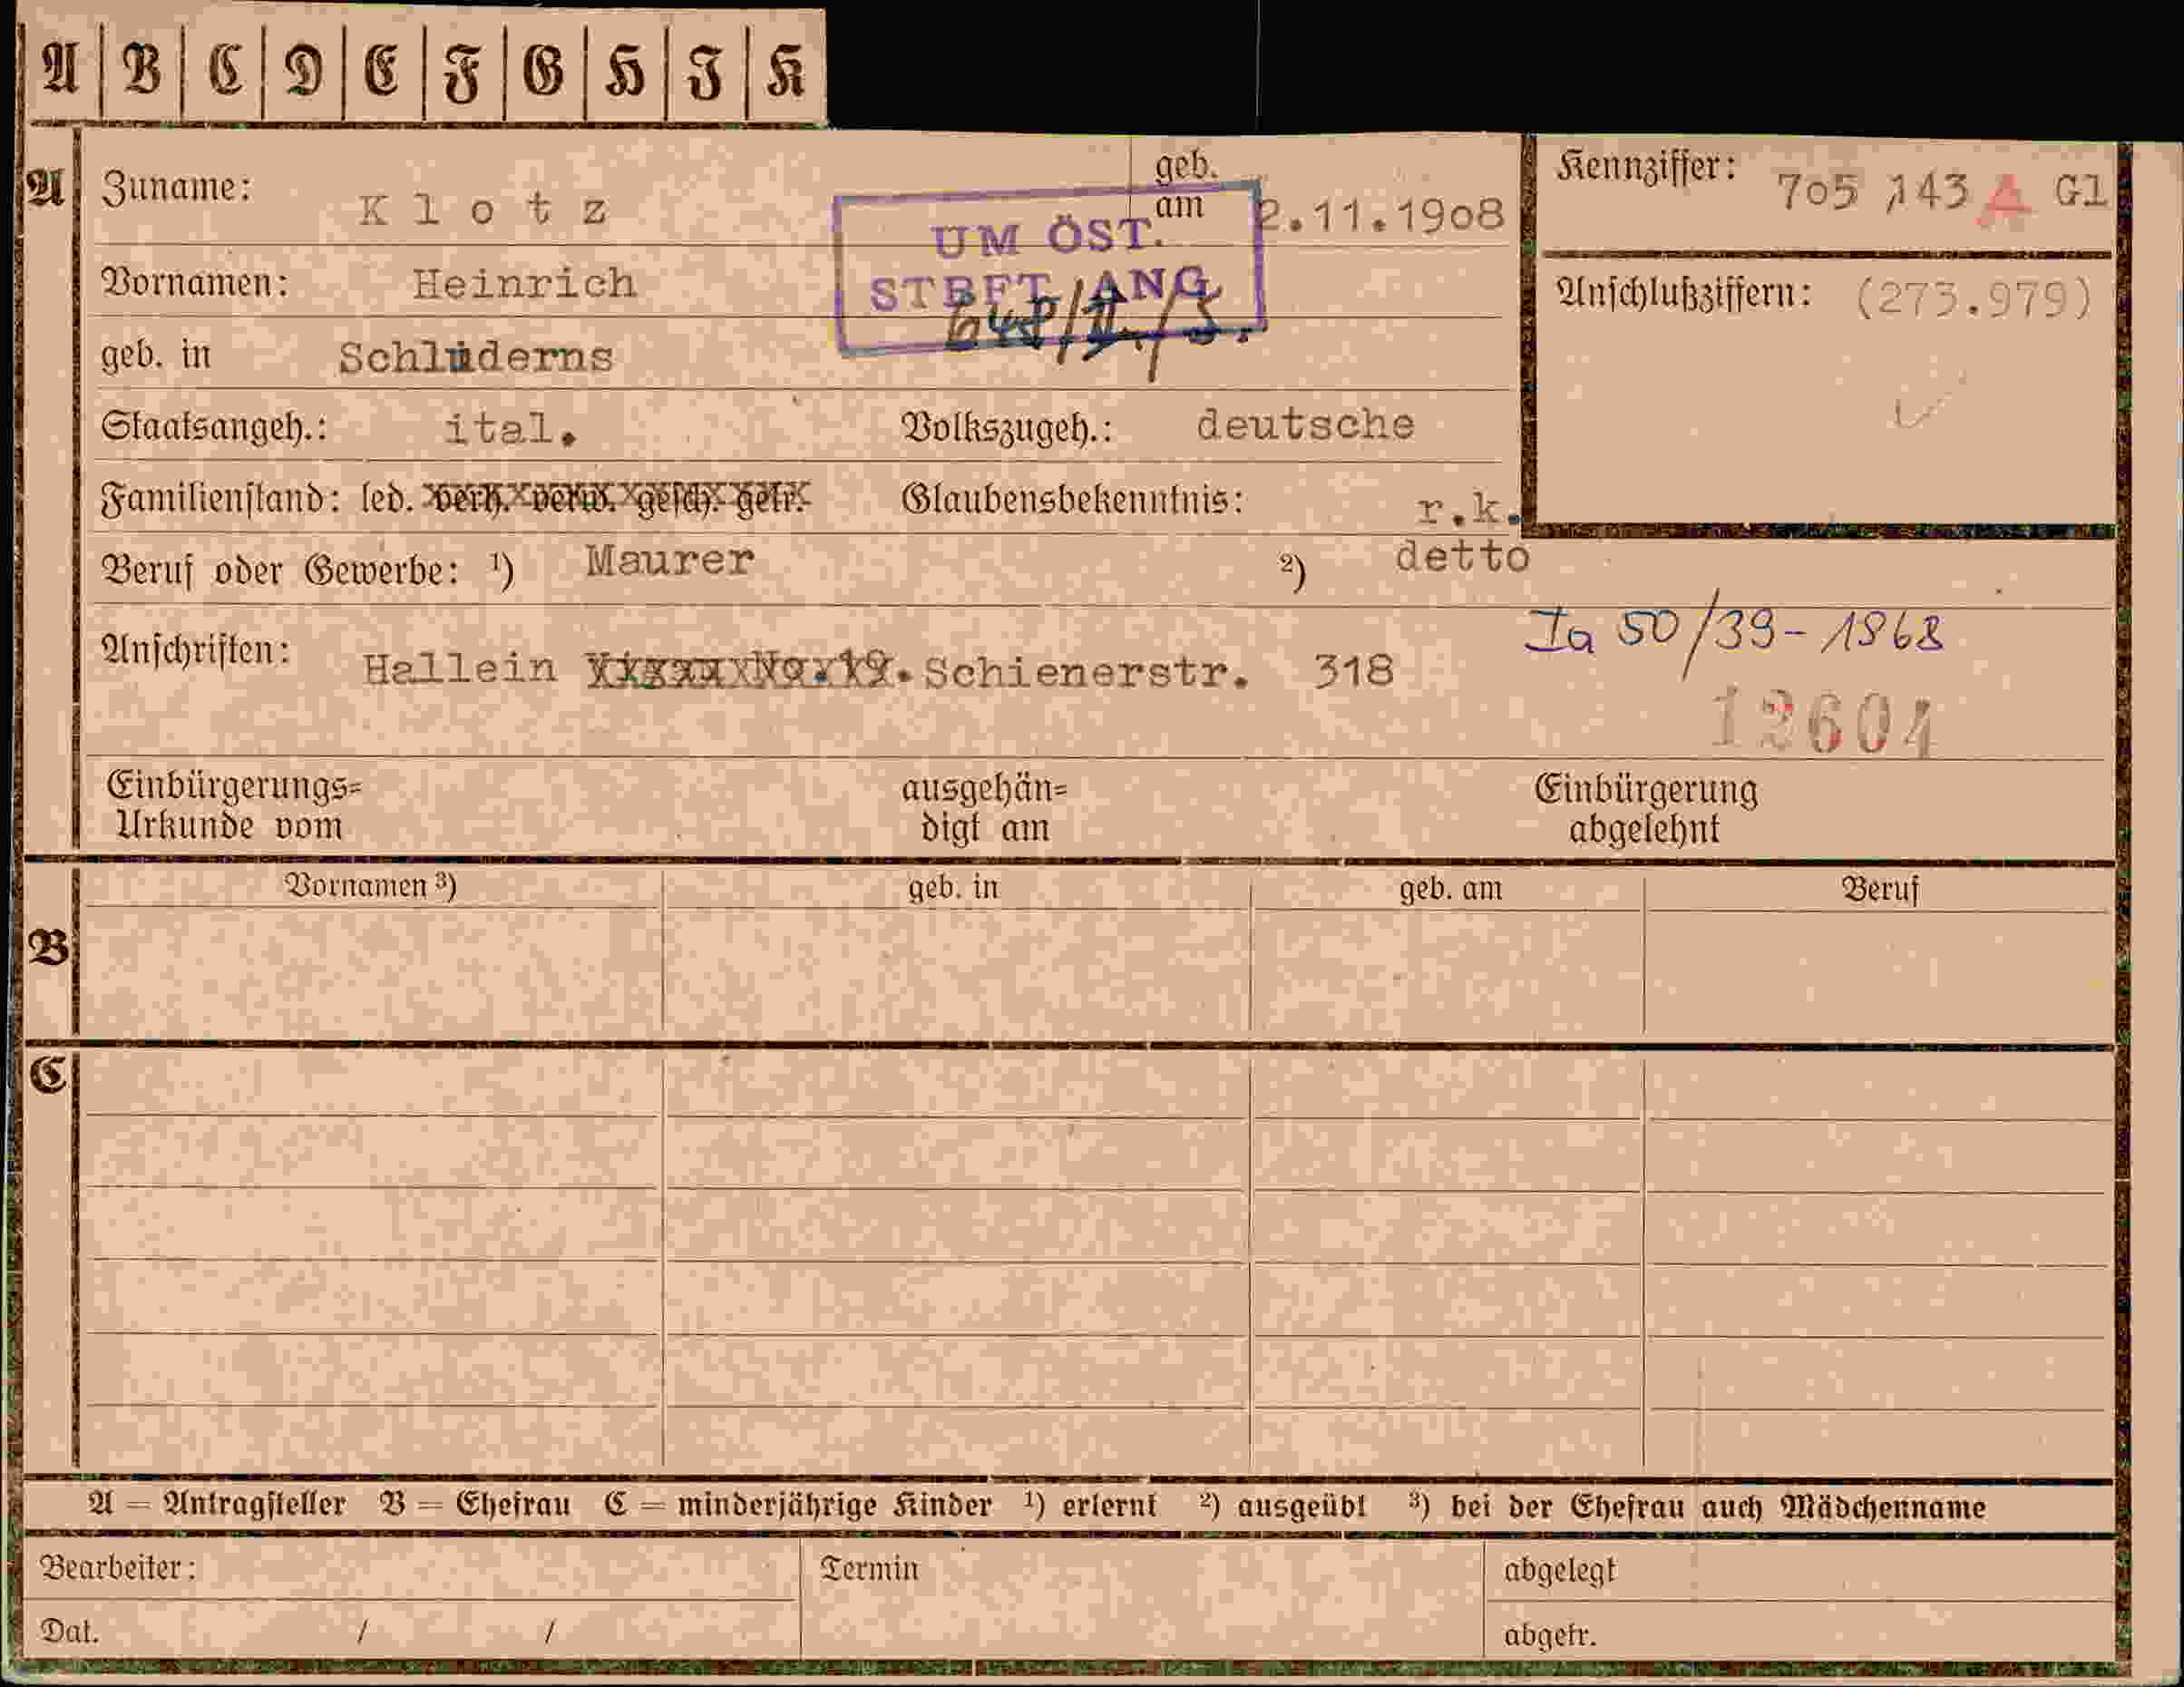 A B C D E F G H I K
A Zuname: Klotz geb. am 2.11.1908
Kennziffer: 705 143 A Gl
UM ÖST.
STBFT ANG.
Vornamen: Heinrich
Anschlußziffern: (273.979)
geb. in Schluderns
Staatsangeh.: ital. Volkszugeh.: deutsche
Familienstand: led. verh. verw. gesch. getr. Glaubensbekenntnis: r.k.
Beruf oder Gewerbe: ¹) Maurer ²) detto
Ia 50/39-1968
Anschriften: Hallein Schienerstr. 318
12604
Einbürgerungs= ausgehän= Einbürgerung
Urkunde vom digt am abgelehnt
Vornamen ³) geb. in geb. am Beruf
B
C
A = Antragsteller B = Ehefrau C = minderjährige Kinder ¹) erlernt ²) ausgeübt ³) bei der Ehefrau auch Mädchenname
Bearbeiter: Termin abgelegt
Dat. / / abgetr.